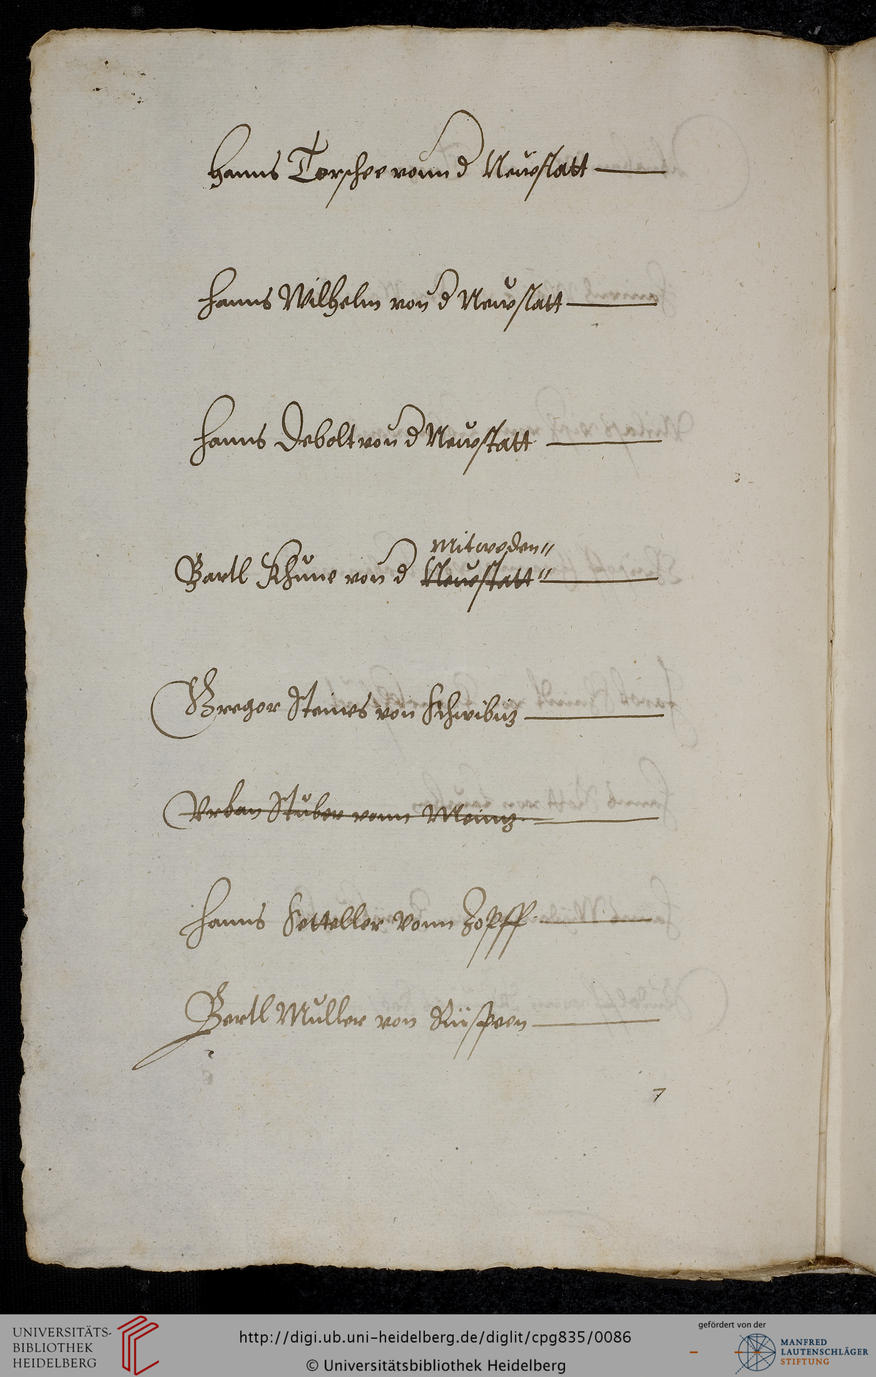 Hanns Torschee vonn d Neüstatt
Hanns Wilhelm von d Neustatt
Hanns Debolt von d Neustatt
Mitweden
Bartl Khune von d Neustatt
Gregor Steines von Schwibitz
Vrban Stuber vonn Meintz
Hanns Setteller vonn Zopff
Bertl Muller von
7
UNIVERSITÄTS-
BIBLIOTHEK
HEIDELBERG
http://digi.ub.uni-heidelberg.de/diglit/cpg835/0086
© Universitätsbibliothek Heidelberg
gefördert von der
MANFRED
LAUTENSCHLÄGER
STIFTUNG